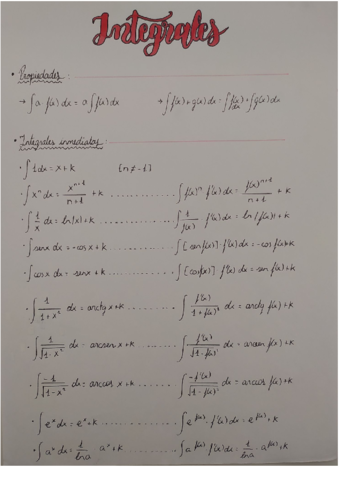 Integrales
• Propiedades:
→ ∫a·f(x)dx = a∫f(x)dx    → ∫f(x)+g(x)dx = ∫f(x)dx + ∫g(x)dx
• Integrales inmediatas:
· ∫1dx = x+k    [n≠-1]
· ∫xⁿdx = xⁿ⁺¹/(n+1) + k .......... ∫f(x)ⁿ f'(x)dx = f(x)ⁿ⁺¹/(n+1) + k
· ∫1/x dx = ln|x|+k .......... ∫1/f(x) f'(x)dx = ln|f(x)|+k
· ∫senx dx = -cosx+k .......... ∫[senf(x)]·f'(x)dx = -cosf(x)+k
· ∫cosx dx = senx+k .......... ∫[cosf(x)] f'(x)dx = senf(x)+k
· ∫1/(1+x²) dx = arctgx+k ........ ∫f'(x)/(1+f(x)²) dx = arctg f(x)+k
· ∫1/√(1-x²) dx = arcsenx+k ........ ∫f'(x)/√(1-f(x)²) dx = arcsen f(x)+k
· ∫-1/√(1-x²) dx = arccos x+k ....... ∫-f'(x)/√(1-f(x)²) dx = arccos f(x)+k
· ∫eˣdx = eˣ+k .......... ∫e^f(x)·f'(x)dx = e^f(x)+k
· ∫aˣdx = 1/lna aˣ+k .......... ∫a^f(x) f'(x)dx = 1/lna · a^f(x)+k